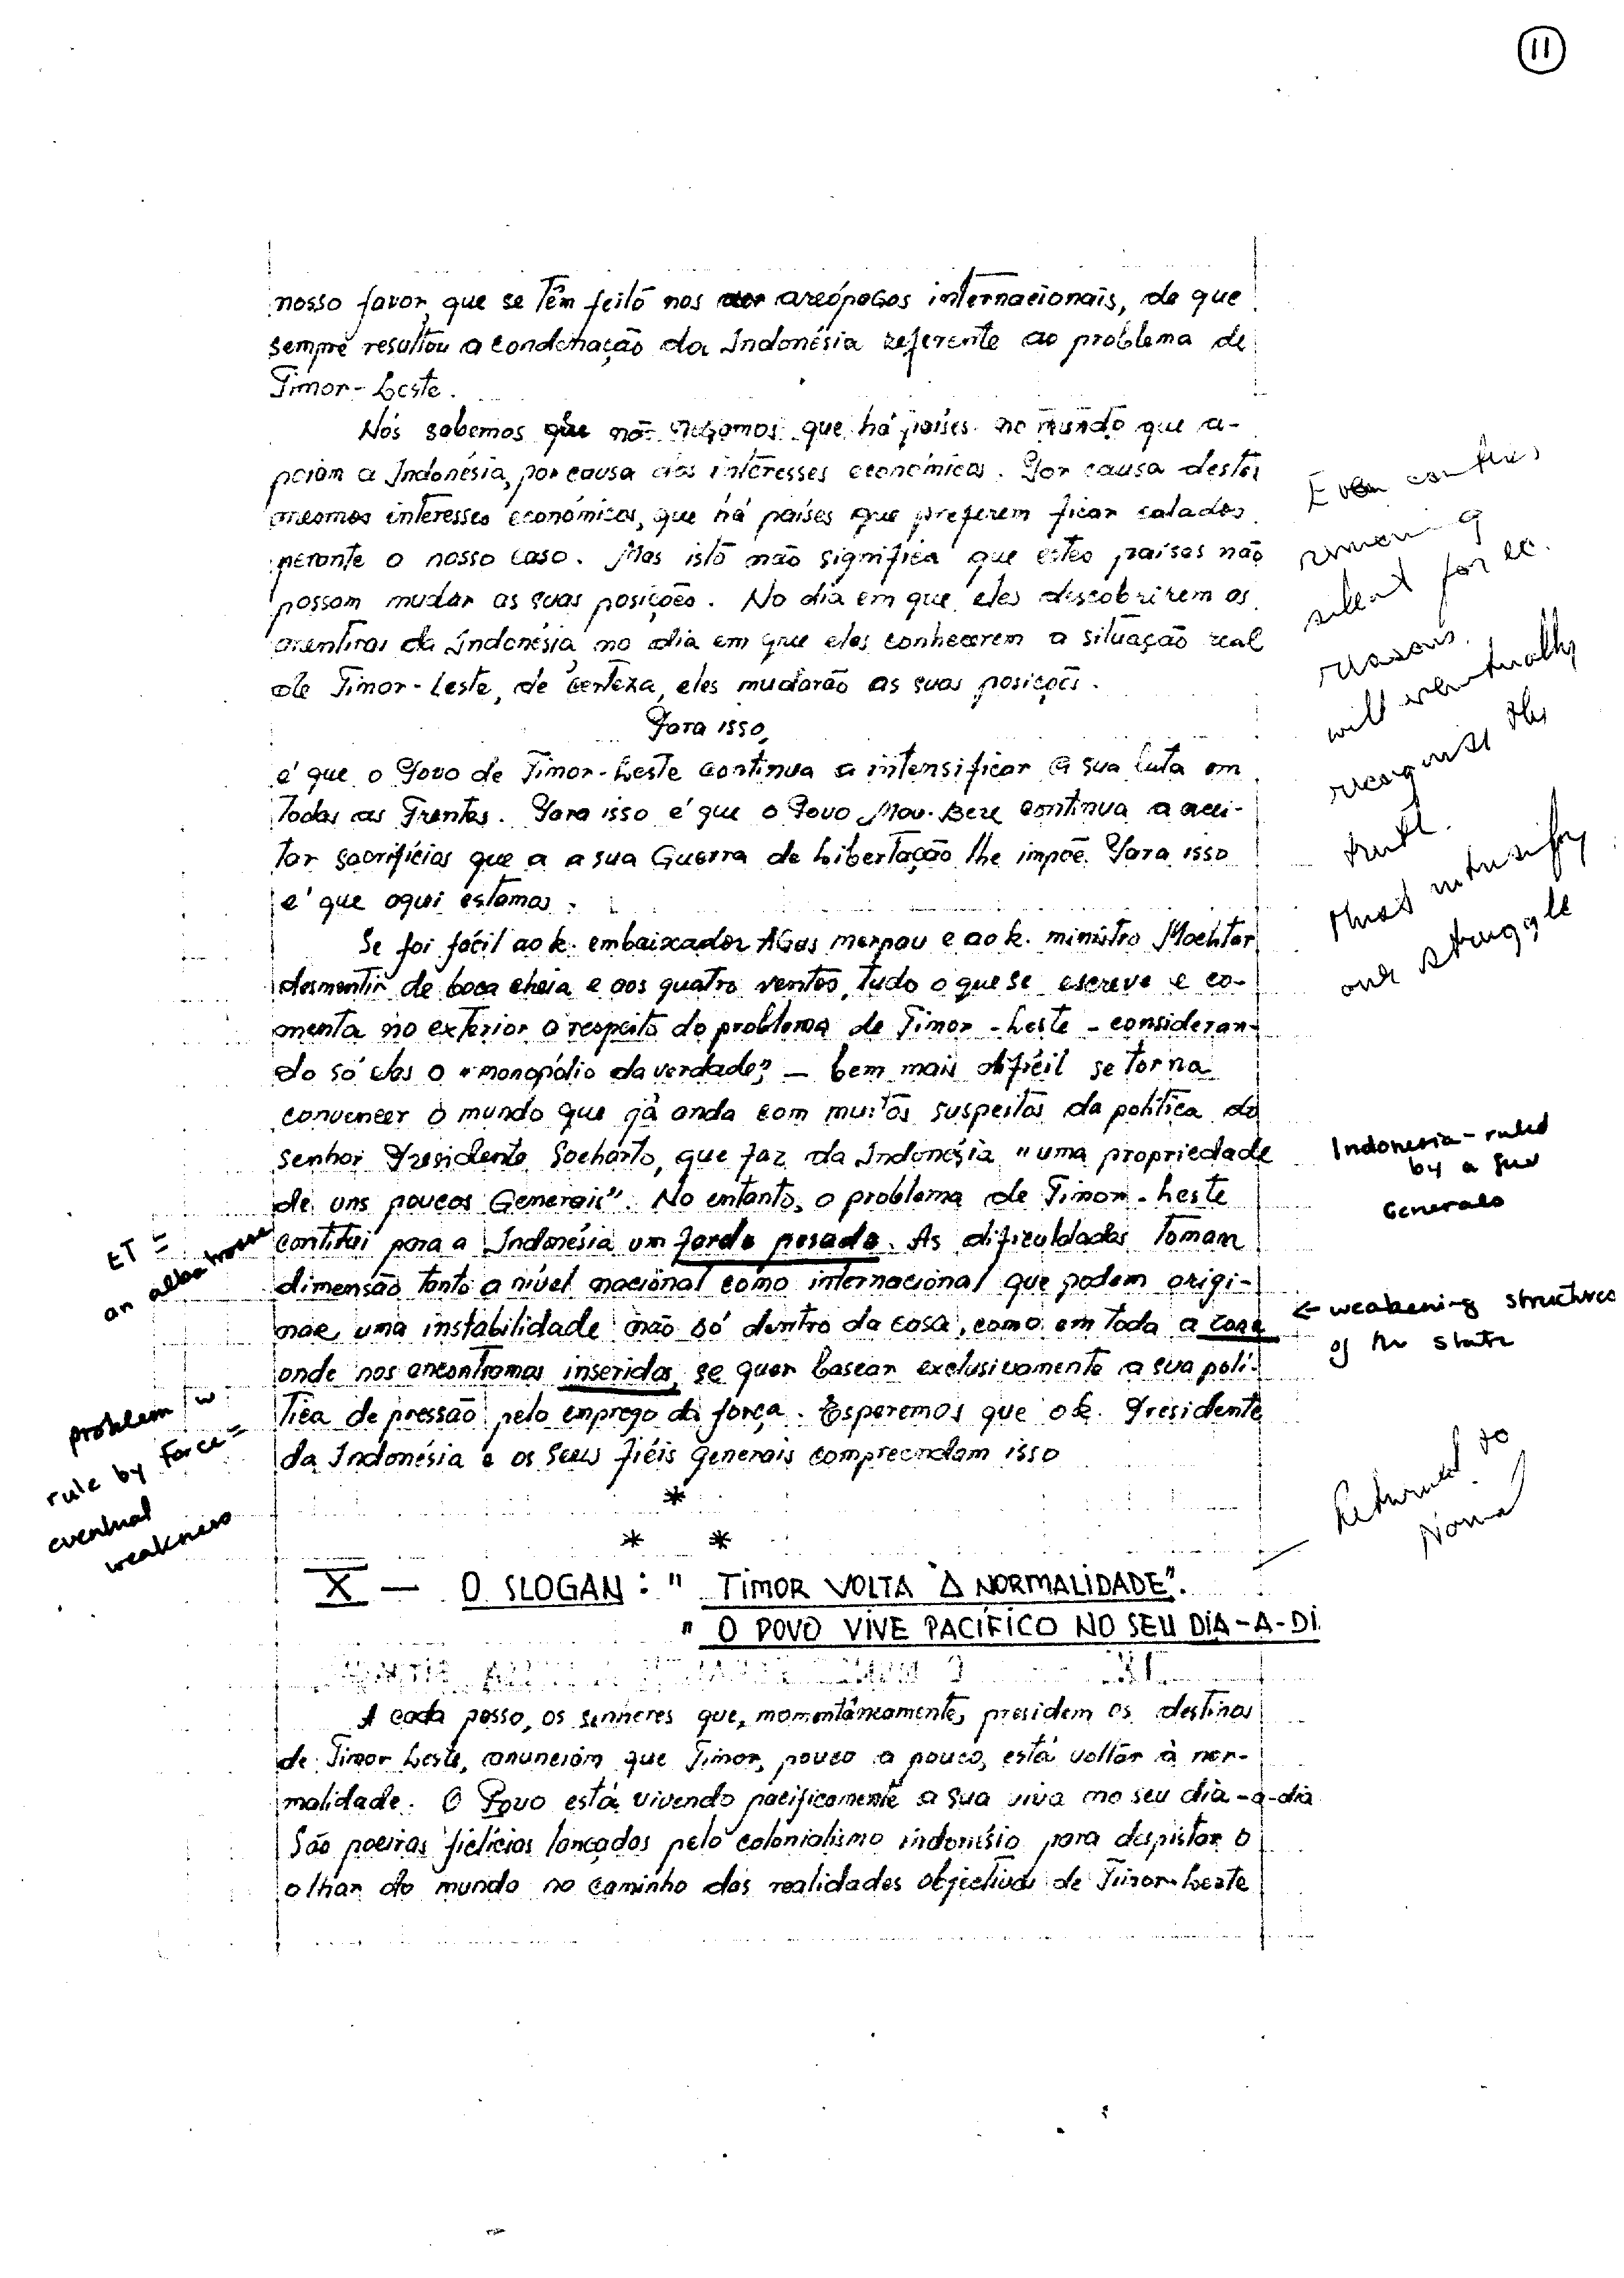 11
nosso favor, que se Têm feito nos areópagos internacionais, de que
sempre resultou a condenação da Indonésia referente ao problema de
Timor-Leste.
Nós sabemos que há países no mundo que a-
poiam a Indonésia, por causa dos interesses económicos. Por causa destes
mesmos interesses económicos, que há países que preferem ficar calados
perante o nosso caso. Mas isto não significa que estes países não
possam mudar as suas posições. No dia em que eles descobrirem as
mentiras da Indonésia, no dia em que eles conhecerem a situação real
de Timor-Leste, de certeza, eles mudarão as suas posições.
Para isso,
é que o Povo de Timor-Leste continua a intensificar a sua luta em
Todas as Frentes. Para isso é que o Povo Mau-Bere continua a acei-
tar sacrifícios que a a sua Guerra de Libertação lhe impõe. Para isso
é que aqui estamos.
Se foi fácil ao k. embaixador Agus marpau e ao k. ministro Mochtar
desmentir de boca cheia e aos quatro ventos, tudo o que se escreve e co-
menta no exterior a respeito do problema de Timor-Leste - consideran-
do só eles o "monopólio da verdade" — bem mais difícil se torna
convencer o mundo que já anda com muitas suspeitas da política do
senhor Presidente Soeharto, que faz da Indonésia "uma propriedade
de uns poucos Generais". No entanto, o problema de Timor-Leste
contitui para a Indonésia um fardo pesado. As dificuldades Tomam
dimensão tanto a nível nacional como internacional que podem origi-
nar uma instabilidade não só dentro da casa, como em toda a zona
onde nos encontramos inseridos, se quer basear exclusivamente a sua polí-
Tica de pressão pelo emprego da força. Esperemos que o k. Presidente
da Indonésia e os seus fiéis generais compreendam isso
*
* *
X — O SLOGAN: " TIMOR VOLTA À NORMALIDADE".
" O POVO VIVE PACÍFICO NO SEU DIA-A-DI
A cada passo, os senhores que, momentâneamente, presidem os destinos
de Timor Leste, anunciam que Timor, pouco a pouco, está voltar à nor-
malidade. O Povo está vivendo pacificamente a sua viva no seu dia-a-dia
São poeiras fictícias lançadas pelo colonialismo indonésio para despistar o
olhar do mundo no caminho das realidades objectivas de Timor-Leste
Even
remaining
silent for ec.
reasons.
will eventually
recognise the
truth.
Must intensify
our struggle
Indonesia - ruled
by a few
Generals
ET =
an albatrosse
← weakening structures
of the state
problem w
rule by force =
eventual
weakness
Returned to
Normal